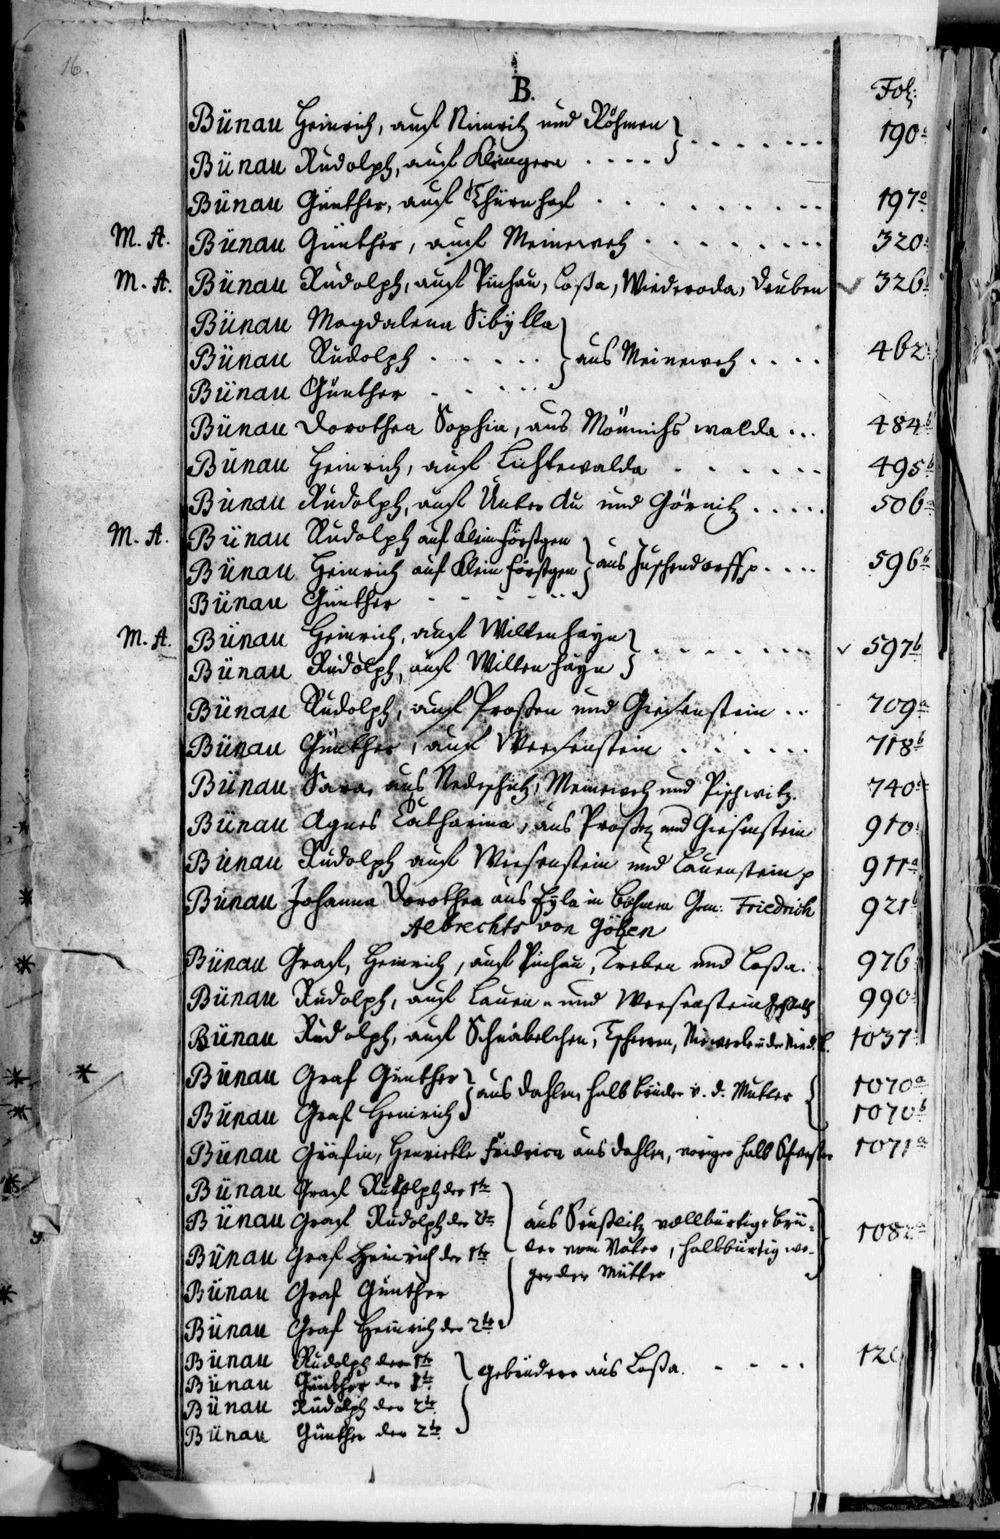 16.
B.
Fol:
Bünau Heinrich, auf Nimritz und Röhmen
190a
Bünau Rudolph, auf
Bünau Günther, auf Thürnhof
197a
M. A. Bünau Günther, auf Meineweh
320
M. A. Bünau Rudolph, auf Püchau, Loßa, Wiederoda, Deuben
326
Bünau Magdalena Sibylla
Bünau Rudolph
aus Meineweh
462
Bünau Günther
Bünau Dorothea Sophia, aus Mönnichswalda
484b
Bünau Heinrich, auf Lichtewalda
495b
Bünau Rudolph, auf Unter Au und Görnitz
506a
M. A. Bünau Rudolph auf Klein Förstgen
Bünau Heinrich auf Klein Förstgen
aus
596b
Bünau Günther
M. A. Bünau Heinrich, auf Wiltenhayn
597b
Bünau Rudolph, auf Wiltenhayn
Bünau Rudolph, auf Proßen und Giesenstein
709a
Bünau Günther, auf Weesenstein
718b
Bünau Sara, aus Meineweh und
740a
Bünau Agnes Catharina, aus Proßen und Giesenstein
910
Bünau Rudolph auf Weesenstein und Lauenstein p
911a
Bünau Johanna Dorothea aus Eyla in Böhmen Gem: Friedrich
921b
Albrechts von Gößen
Bünau Graf, Heinrich, auf Püchau, Treben und Loßa.
976
Bünau Rudolph, auf Lauen- und Weesenstein
990
Bünau Rudolph, auf
1037
Bünau Graf Günther
aus Dahlen, halb brüder v. d. Mutter
1070a
Bünau Graf Heinrich
1070b
Bünau Gräfin, Henriette Fridrica aus Dahlen, voriger halb Schwester
1071a
Bünau Graf Rudolph der 1te
Bünau Graf Rudolph der 2te
aus Seußlitz vollbürtige Brü-
Bünau Graf Heinrich der 1te
der vom Vater, halbbürtig we-
108
Bünau Graf Günther
gen der Mutter
Bünau Graf Heinrich der 2te
Bünau Rudolph der 1te
Bünau Günther der 1te
Gebrüdere aus Loßa.
12
Bünau Rudolph der 2te
Bünau Günther der 2te